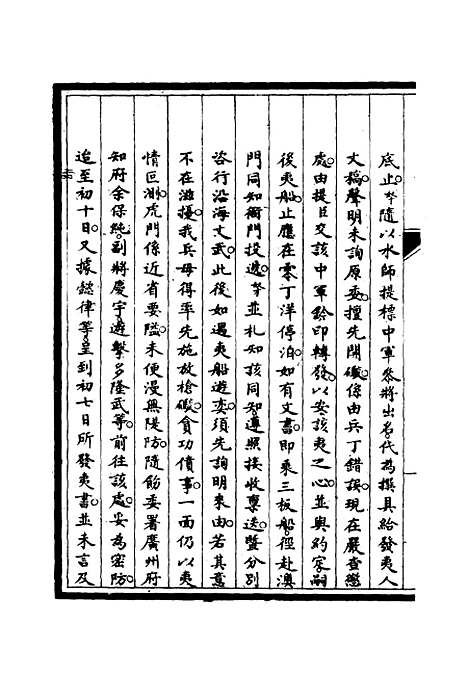 底止。等隨以水師提標中軍參將出名。代為撰具給發夷人
文稿。聲明未詢原委。擅先開礮。係由兵丁錯誤。現在嚴查懲
處。由提臣交該中軍鈐印轉發。以安該夷之心。並與約定。嗣
後夷船止應在零丁洋停泊。如有文書。即乘三板船。徑赴澳
門同知衙門投遞。等並札知該同知。遵照接收稟送。暨分別
咨行沿海文武。此後如遇夷船遊奕。須先詢明來由。若其意
不在滋擾。我兵毋得率先施放槍礮。貪功僨事。一面仍以夷
情叵測。虎門係近省要隘。未便漫無隄防。隨飭委署廣州府
知府余保純。副將慶宇。遊擊多隆武等。前往該處。妥為密防。
迨至初十日。又據懿律等。呈到初七日所發夷書。並未言及